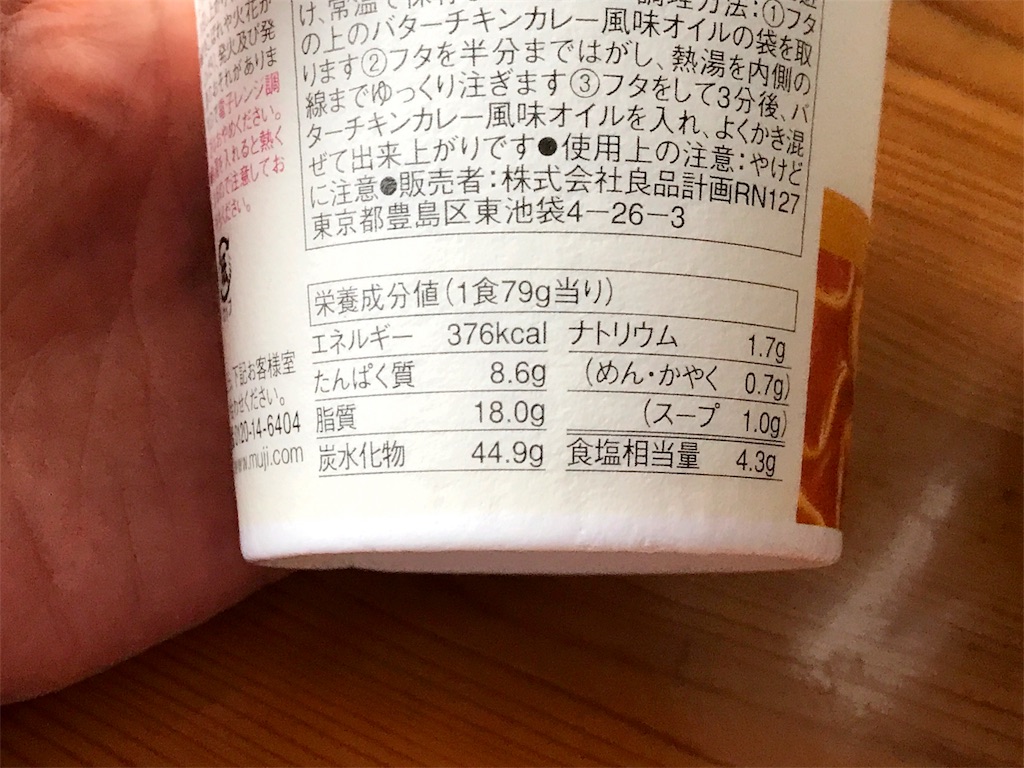 れや火花が
発火及び発
それがありま
電子レンジ調
めください。
入れると熱く
で注意してお
ださい。
下記お客様室
わせください。
0120-14-6404
www.muji.com
け、常温で保存
調理方法:①フタ
の上のバターチキンカレー風味オイルの袋を取
ります②フタを半分まではがし、熱湯を内側の
線までゆっくり注ぎます③フタをして3分後、バ
ターチキンカレー風味オイルを入れ、よくかき混
ぜて出来上がりです●使用上の注意:やけど
に注意●販売者:株式会社良品計画RN127
東京都豊島区東池袋4−26−3
栄養成分値(1食79g当り)
エネルギー 376kcal ナトリウム 1.7g
たんぱく質 8.6g (めん・かやく 0.7g)
脂質 18.0g (スープ 1.0g)
炭水化物 44.9g 食塩相当量 4.3g